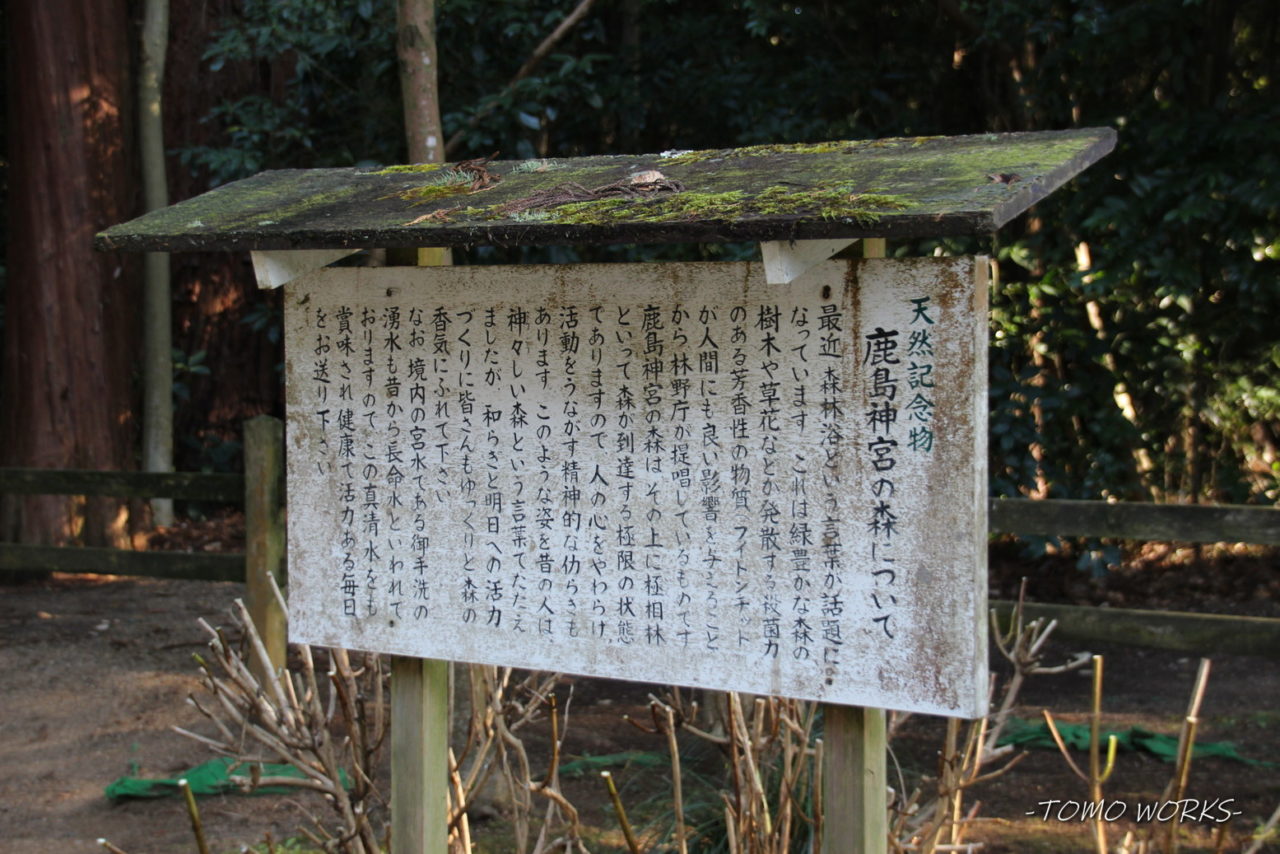 天然記念物
鹿島神宮の森について
最近 森林浴という言葉が話題に
なっています これは緑豊かな森の
樹木や草花などが発散する殺菌力
のある芳香性の物質 フィトンチッド
が人間にも良い影響を与えること
から 林野庁が提唱しているものです
鹿島神宮の森は その上に極相林
といって森が到達する極限の状態
でありますので 人の心をやわらげ
活動をうながす精神的な仂らきも
あります このような姿を昔の人は
神々しい森という言葉でたたえ
ましたが 和らぎと明日への活力
づくりに皆さんもゆっくりと森の
香気にふれて下さい
なお 境内の宮水である御手洗の
湧水も昔から長命水といわれて
おりますので この真清水をも
賞味され健康で活力ある毎日
をお送り下さい
-TOMO WORKS-